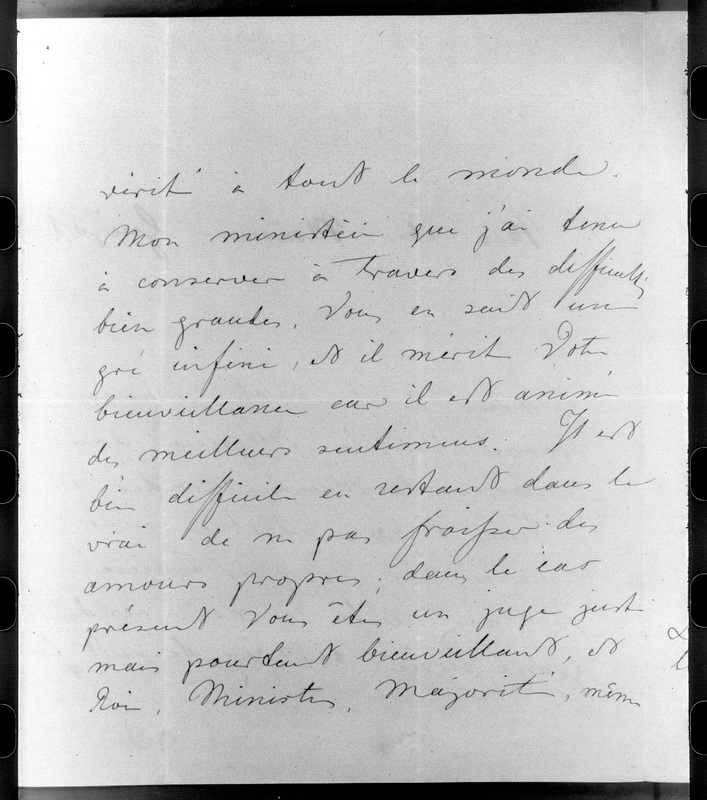 vérité à tout le monde.
Mon ministère que j'ai tenu
à conserver à travers des difficultés
bien grandes, Vous en sait un
gré infini, et il mérite Votre
bienveillance car il est animé
des meilleurs sentimens. Il est
bien difficile en restant dans le
vrai de ne pas froisser des
amours propres; dans le cas
présent Vous êtes un juge juste
mais pourtant bienveillant, et
Roi, Ministres, Majorité, même